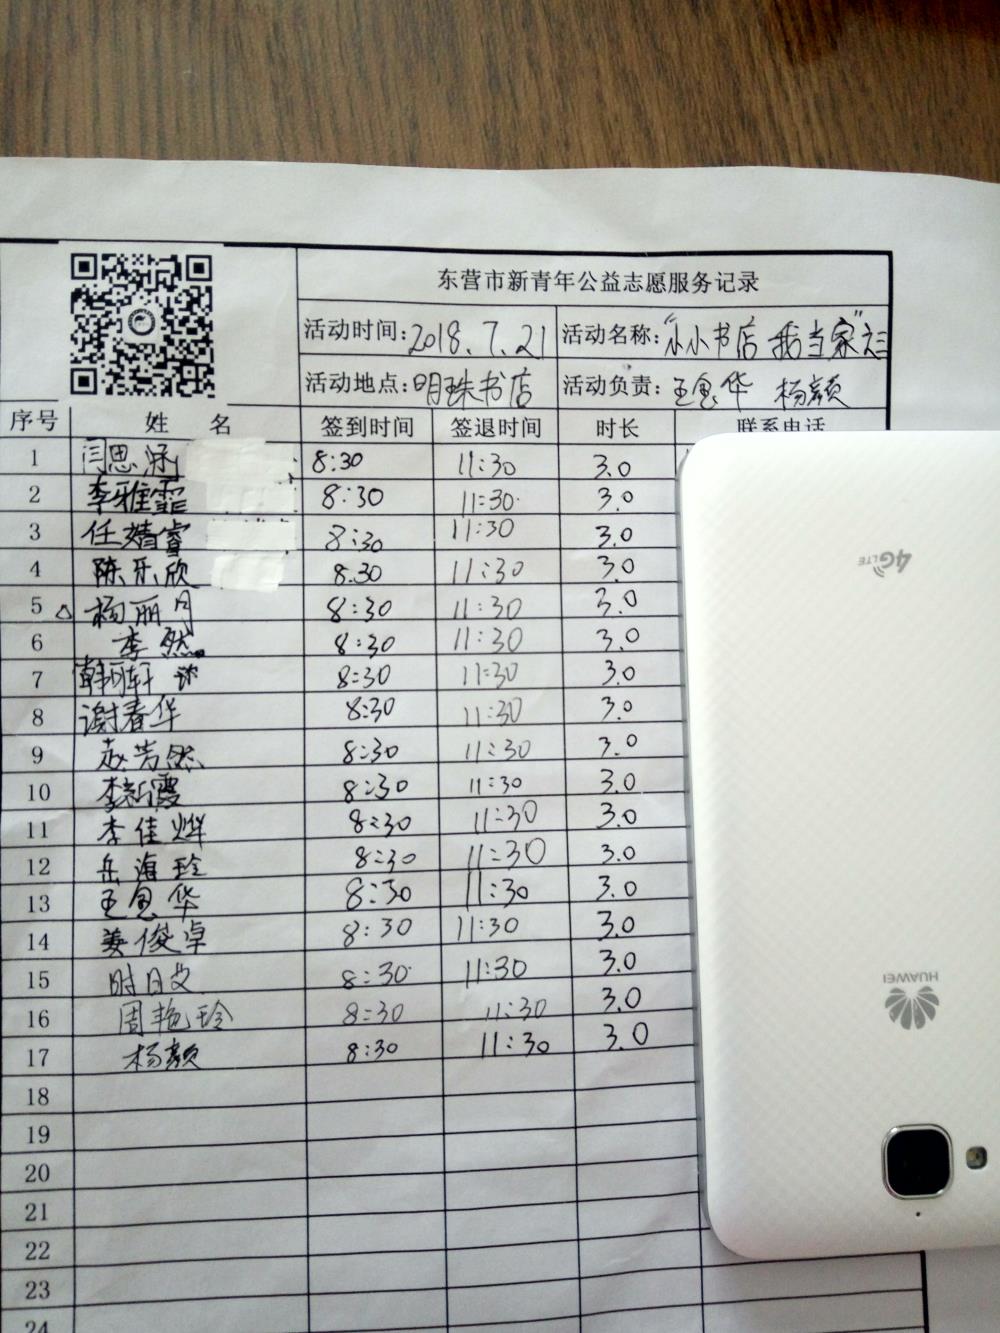 东营市新青年公益志愿服务记录
活动时间:2018.7.21 活动名称:"小小书店 我当家"之三
活动地点:明珠书店 活动负责:王思华 杨颜
序号 姓 名 签到时间 签退时间 时长 联系电话
1 闫思涵 8:30 11:30 3.0
2 李雅霏 8:30 11:30 3.0
3 任婧睿 8:30 11:30 3.0
4 陈乐欣 8.30 11:30 3.0
5 杨丽月 8:30 11:30 3.0
6 李然 8:30 11:30 3.0
7 韩轩 8:30 11:30 3.0
8 谢春华 8:30 11:30 3.0
9 赵芳然 8:30 11:30 3.0
10 李新霞 8:30 11:30 3.0
11 李佳烨 8:30 11:30 3.0
12 岳海玲 8:30 11:30 3.0
13 王思华 8:30 11:30 3.0
14 姜俊卓 8:30 11:30 3.0
15 时日文 8:30 11:30 3.0
16 周艳玲 8:30 11:30 3.0
17 杨颜 8:30 11:30 3.0
18
19
20
21
22
23
24
4G LTE
HUAWEI